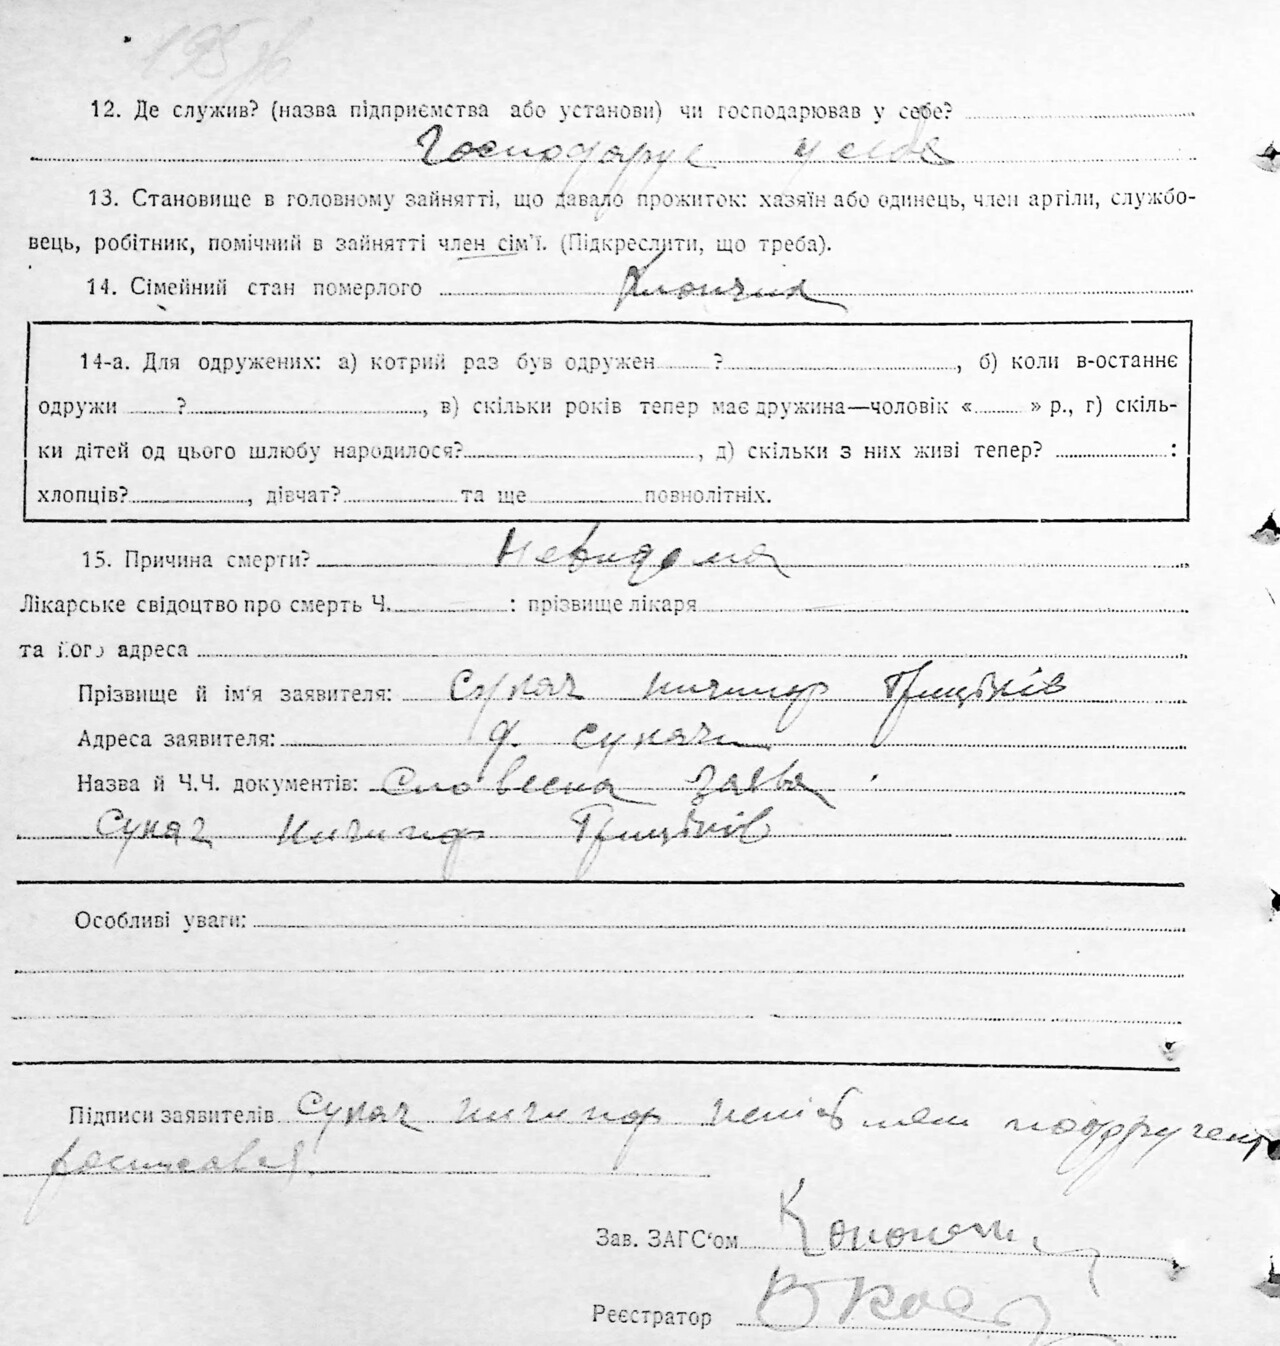 12. Де служив? (назва підприємства або установи) чи господарював у себе?
Господарує у себе
13. Становище в головному зайнятті, що давало прожиток: хазяїн або одинець, член артілі, службо-
вець, робітник, помічний в зайнятті член сім'ї. (Підкреслити, що треба).
14. Сімейний стан померлого
14-а. Для одружених: а) котрий раз був одружен ? , б) коли в-останнє
одружи ? , в) скільки років тепер має дружина—чоловік « » р., г) скіль-
ки дітей од цього шлюбу народилося? , д) скільки з них живі тепер? :
хлопців? , дівчат? та ще повнолітніх.
15. Причина смерти? Невидома
Лікарське свідоцтво про смерть Ч. : прізвище лікаря
та його адреса
Прізвище й ім'я заявителя: Сукач Ничипор Грицьків
Адреса заявителя: Сукачи
Назва й Ч.Ч. документів: Словесна заява
Сукач Ничипор Грицьків
Особливі уваги:
Підписи заявителів Сукач Ничипор
Зав. ЗАГС'ом
Реєстратор